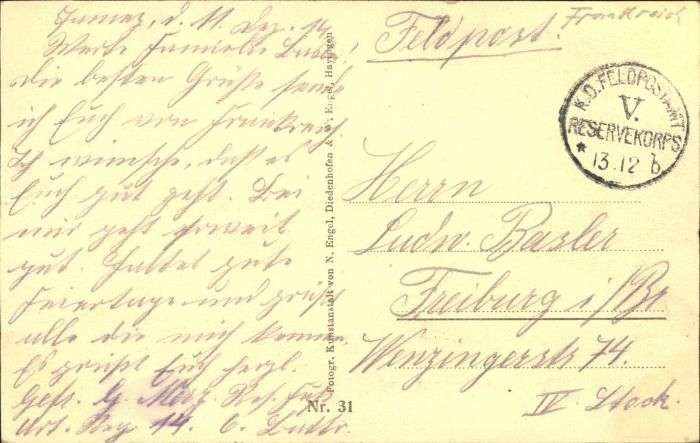 Jamez, d. 11. Dez. 14
Werte Familie Basler
die besten Grüße sende
ich Euch von Frankreich
Ich wünsche, daß es
Euch gut geht. Bei
mir geht soweit
gut. Haltet gute
Feiertage und grüßt
alle die mich kennen.
Es grüßt Euch herzl.
Gefr. G. Res. Fuß
Art. Reg 14. 6. Battr.
Photogr. Kunstanstalt von N. Engel, Diedenhofen & P. Engel, Hayingen
Nr. 31
Feldpost.
Frankreich
K.D. FELDPOSTAMT
V.
RESERVEKORPS
* 13.12 b
Herrn
Ludw. Basler
Freiburg i/Br
Wenzingerstr 74.
IV. Stock.